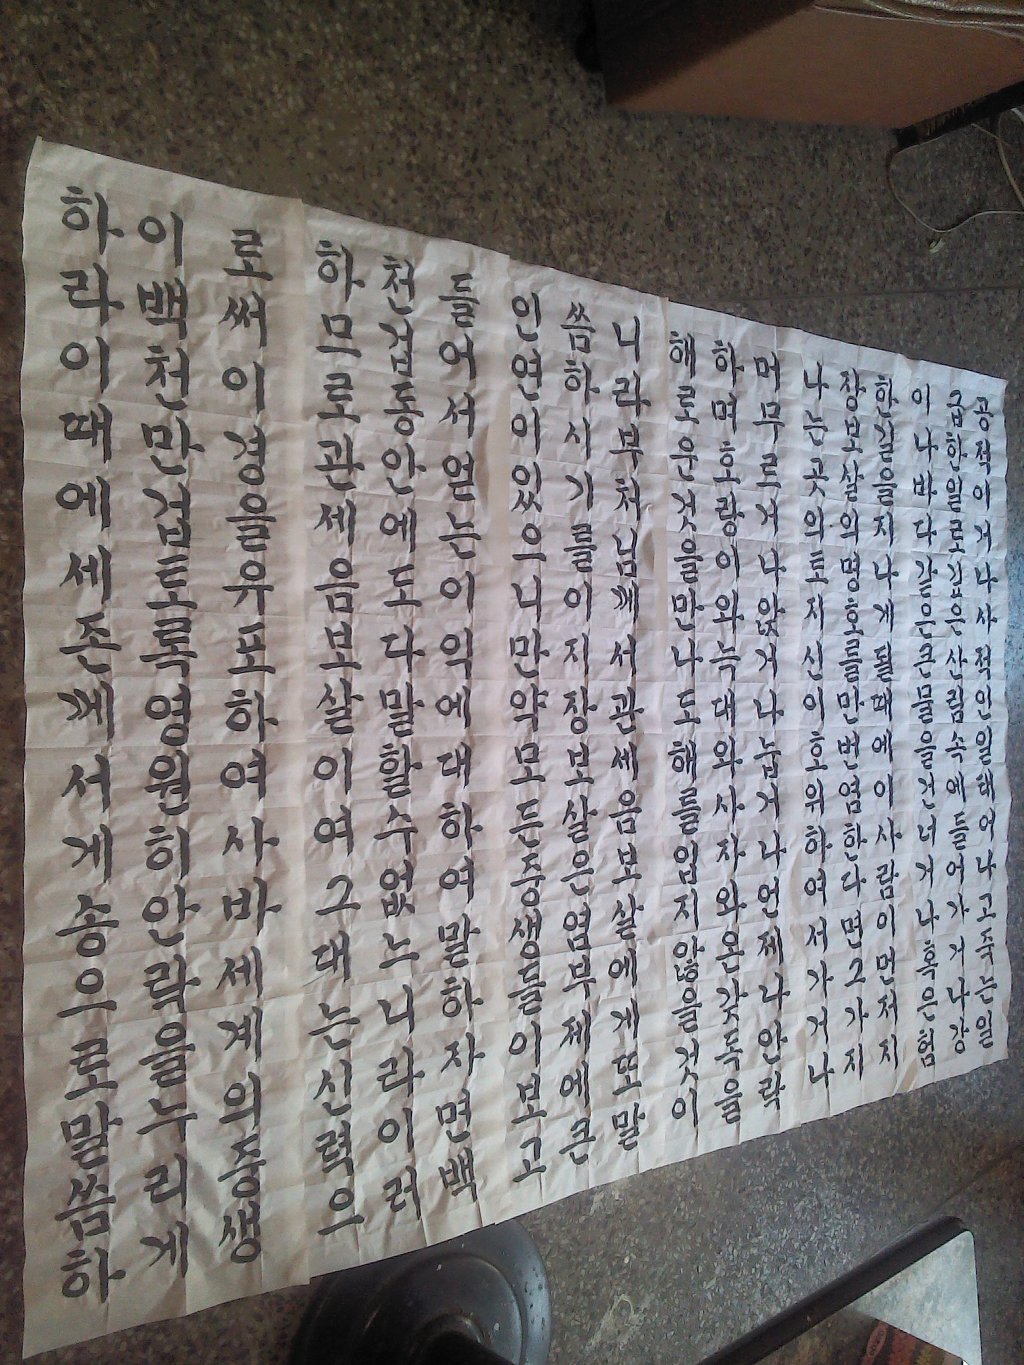 공적이거나사적인일때나고죽는일
급한일로산림속에들어가거나강
이나바다같이큰물을건너거나혹은험
한길을지나게될때에이사람이먼저지
장보살의명호를만번염한다면그가지
나는곳의토지신이호위하여서가거나
머무르거나앉거나눕거나언제나안락
하며호랑이와늑대와사자와온갖독을
해로운것을만나도해를입지않을것이
니라부처님께서관세음보살에게또말
씀하시기를이지장보살은염부제에큰
인연이있으니만약모든중생들이보고
들어서얻는이익에대하여말하자면백
천겁동안에도다말할수없느니라이러
하므로관세음보살이여그대는신력으
로써이경을유포하여사바세계의중생
이백천만겁토록영원히안락을누리게
하라이때에세존께서게송으로말씀하